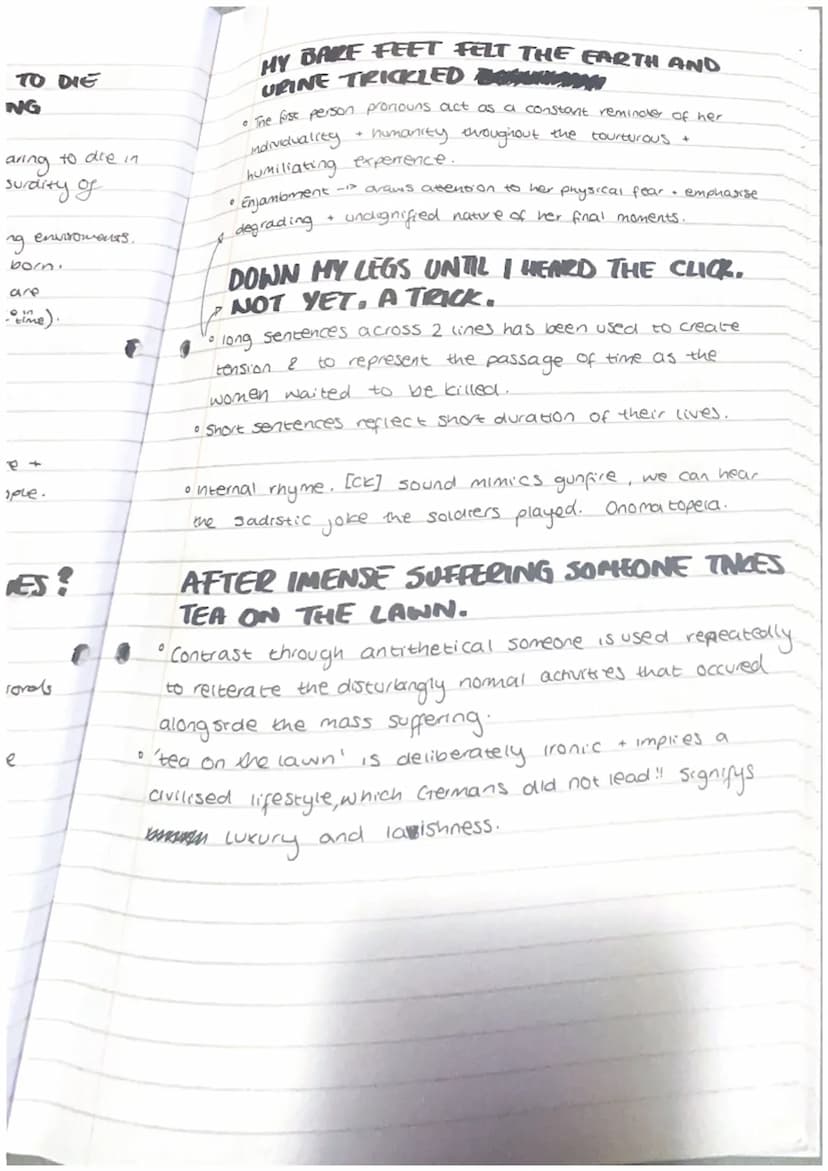 TO DIE
NG
aring to die in
surdity of
ng enviroments.
born.
are
e in
time).
e +
ople.
ES?
e
MY BARE FEET FELT THE EARTH AND
URINE TRICKLED
• The first person pronouns act as a constant reminder of her
individuality + humanity throughout the tourturous +
humiliating experience.
• Enjambment --> draws attention to her physical fear + emphasise
degrading + undignified nature of her final moments.
DOWN MY LEGS UNTIL I HEARD THE CLICK.
NOT YET. A TRICK.
• long sentences across 2 lines has been used to create
tension & to represent the passage of time as the
women waited to be killed.
• Short sentences reflect short duration of their lives.
• Internal rhyme. [CK] sound mimics gunfire, we can hear
the sadistic joke the soldiers played. Onomatopeia.
AFTER IMENSE SUFFERING SOMEONE TAKES
TEA ON THE LAWN.
• Contrast through antithetical someone is used repeatedly
to reiterate the disturbingly normal activities that occured
alongside the mass suffering.
• 'tea on the lawn' is deliberately ironic + implies a
civilised lifestyle, which Germans did not lead!! Signifys
luxury and lavishness.